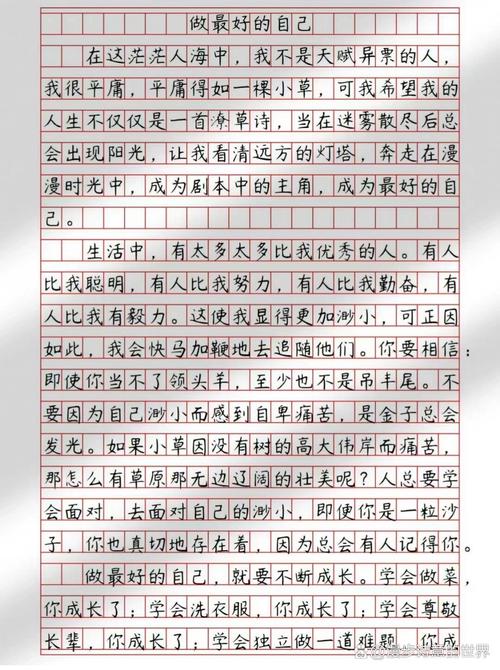 做最好的自己
在这茫茫人海中，我不是天赋异禀的人，
我很平庸，平庸得如一棵小草，可我希望我的
人生不仅仅是一首潦草诗，当在迷雾散尽后总
会出现阳光，让我看清远方的灯塔，奔走在漫
漫时光中，成为剧本中的主角，成为最好的自
己。
生活中，有太多太多比我优秀的人。有人
比我聪明，有人比我努力，有人比我勤奋，有
人比我有毅力。这使我显得更加渺小，可正因
如此，我会快马加鞭地去追随他们。你要相信：
即使你当不了领头羊，至少也不是吊车尾。不
要因为自己渺小而感到自卑痛苦，是金子总会
发光。如果小草因没有树的高大伟岸而痛苦，
那怎么有草原那无边辽阔的壮美呢？人总要学
会面对，去面对自己的渺小，即使你是一粒沙
子，你也真切地存在着，因为总会有人记得你。
做最好的自己，就要不断成长。学会做菜，
你成长了；学会洗衣服，你成长了；学会尊敬
长辈，你成长了；学会独立做一道难题，你成